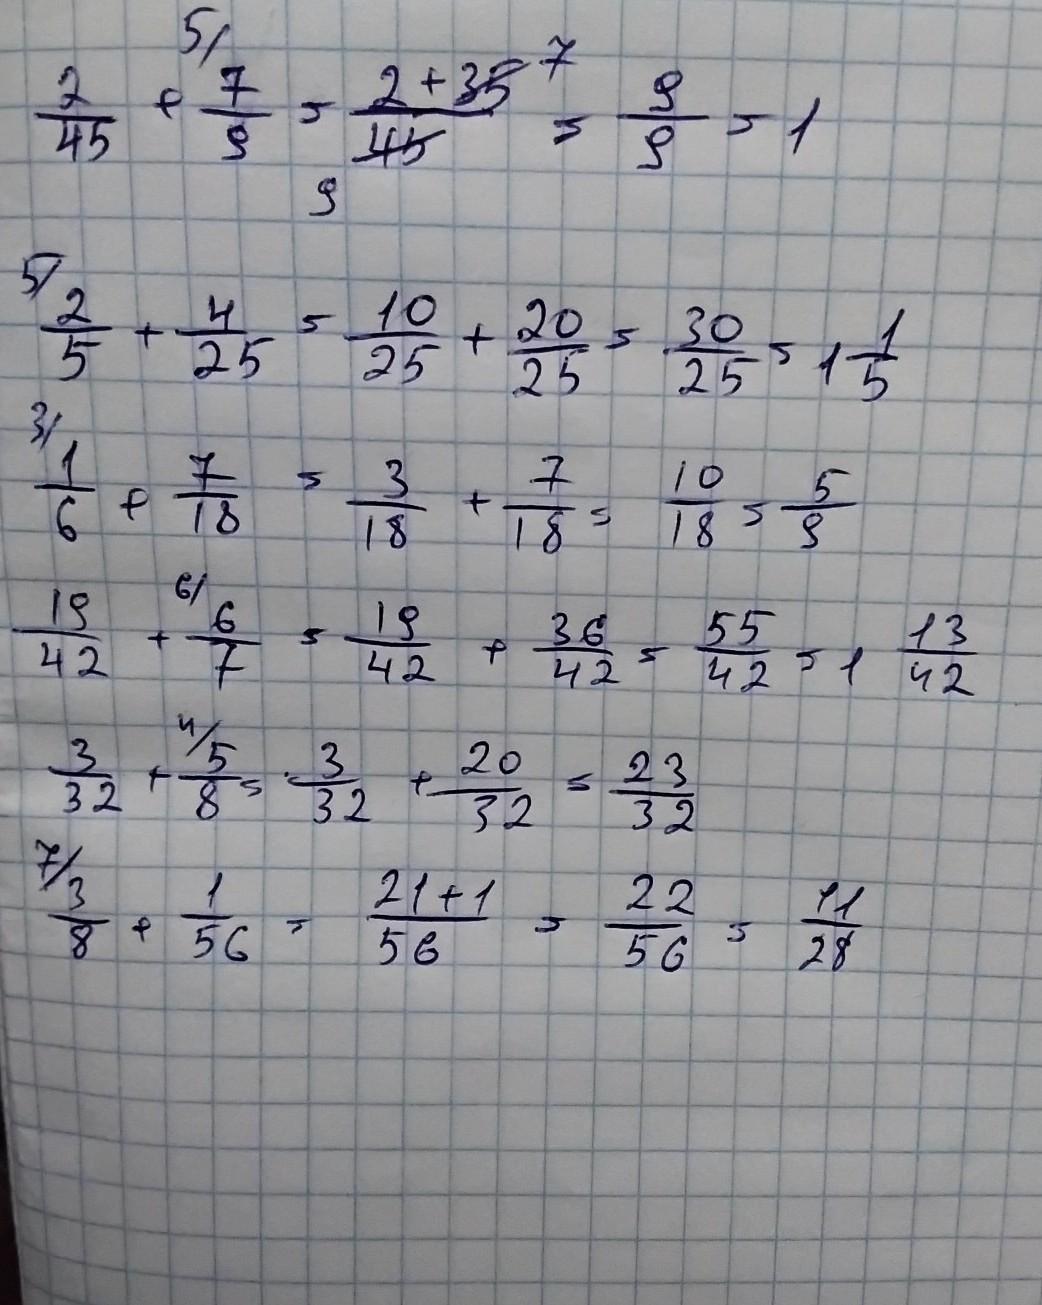 2/45 + 5/ 7/9 = (2 + 35 7)/(45 9) = 9/9 = 1
5/ 2/5 + 4/25 = 10/25 + 20/25 = 30/25 = 1 1/5
3/ 1/6 + 7/18 = 3/18 + 7/18 = 10/18 = 5/9
19/42 + 6/ 6/7 = 19/42 + 36/42 = 55/42 = 1 13/42
3/32 + 4/ 5/8 = 3/32 + 20/32 = 23/32
7/ 3/8 + 1/56 = (21+1)/56 = 22/56 = 11/28